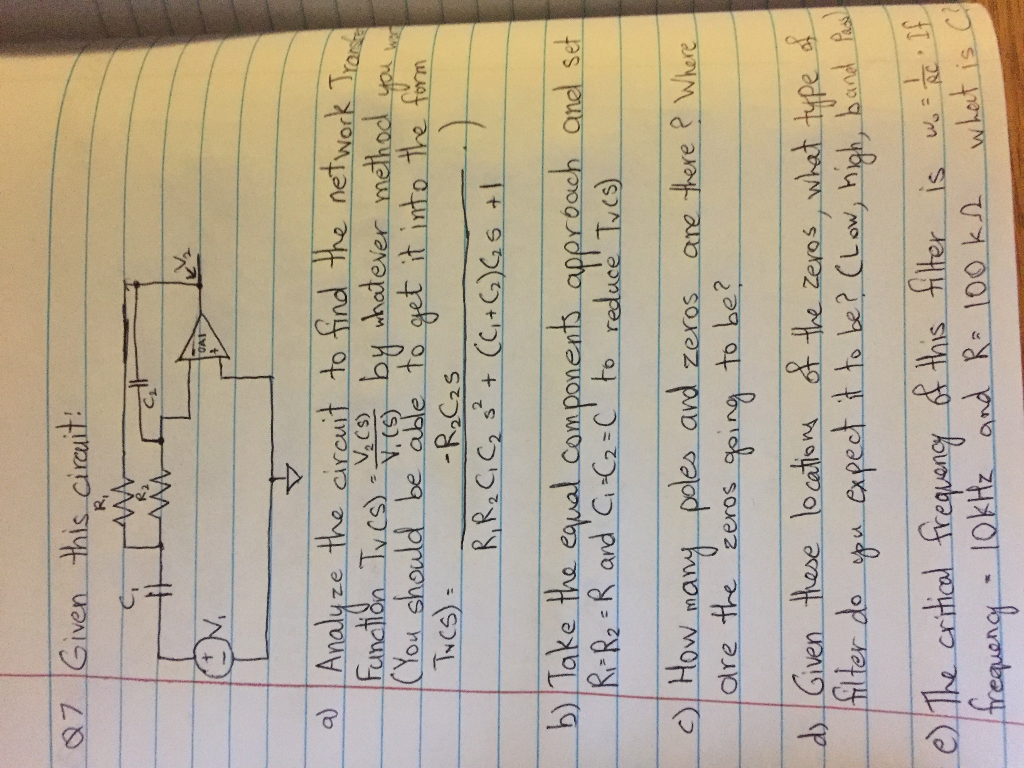 Q7 Given this circuit:
R₁
C₁
R₂
C₂
V₂
OA1
V₁
a) Analyze the circuit to find the network
Function Tv(s) = V₂(s)/V₁(s) by whatever method you
(You should be able to get it into the form
Tv(s) = -R₂C₂s / R₁R₂C₁C₂s² + (C₁+C₂)G₂s + 1 .)
b) Take the equal components approach and set
R₁=R₂=R and C₁=C₂=C to reduce Tv(s)
c) How many poles and zeros are there? Where
are the zeros going to be?
d) Given these locations of the zeros, what type of
filter do you expect it to be? (Low, high, band Pass)
e) The critical frequency of this filter is ω₀ = 1/RC. If
frequency = 10kHz and R= 100 kΩ what is C?